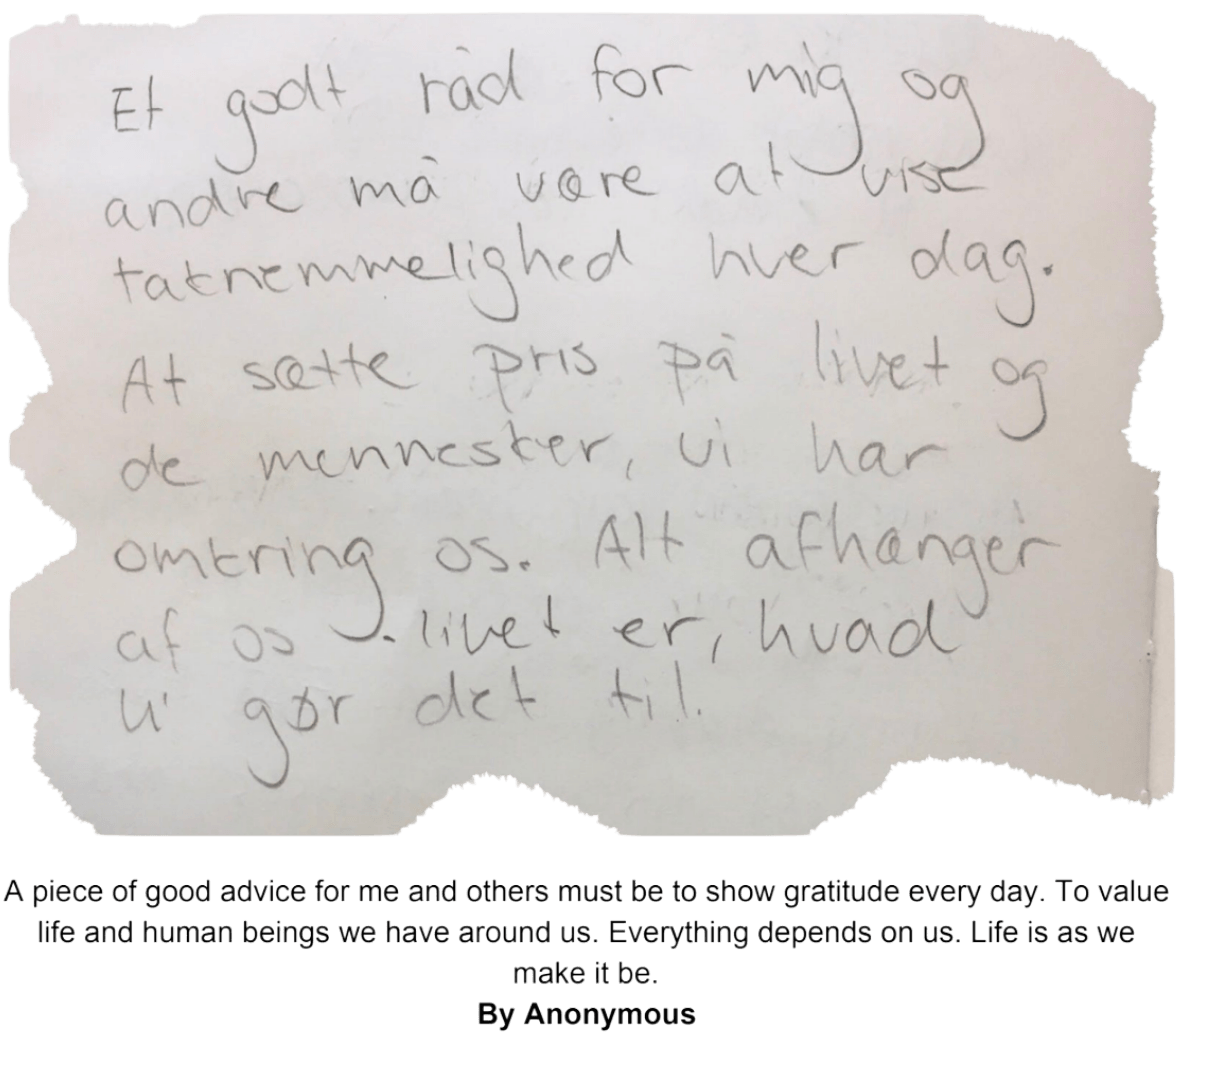 Et godt råd for mig og
andre må være at vise
taknemmelighed hver dag.
At sætte pris på livet og
de mennesker, vi har
omkring os. Alt afhænger
af os - livet er, hvad
vi gør det til.
A piece of good advice for me and others must be to show gratitude every day. To value
life and human beings we have around us. Everything depends on us. Life is as we
make it be.
By Anonymous